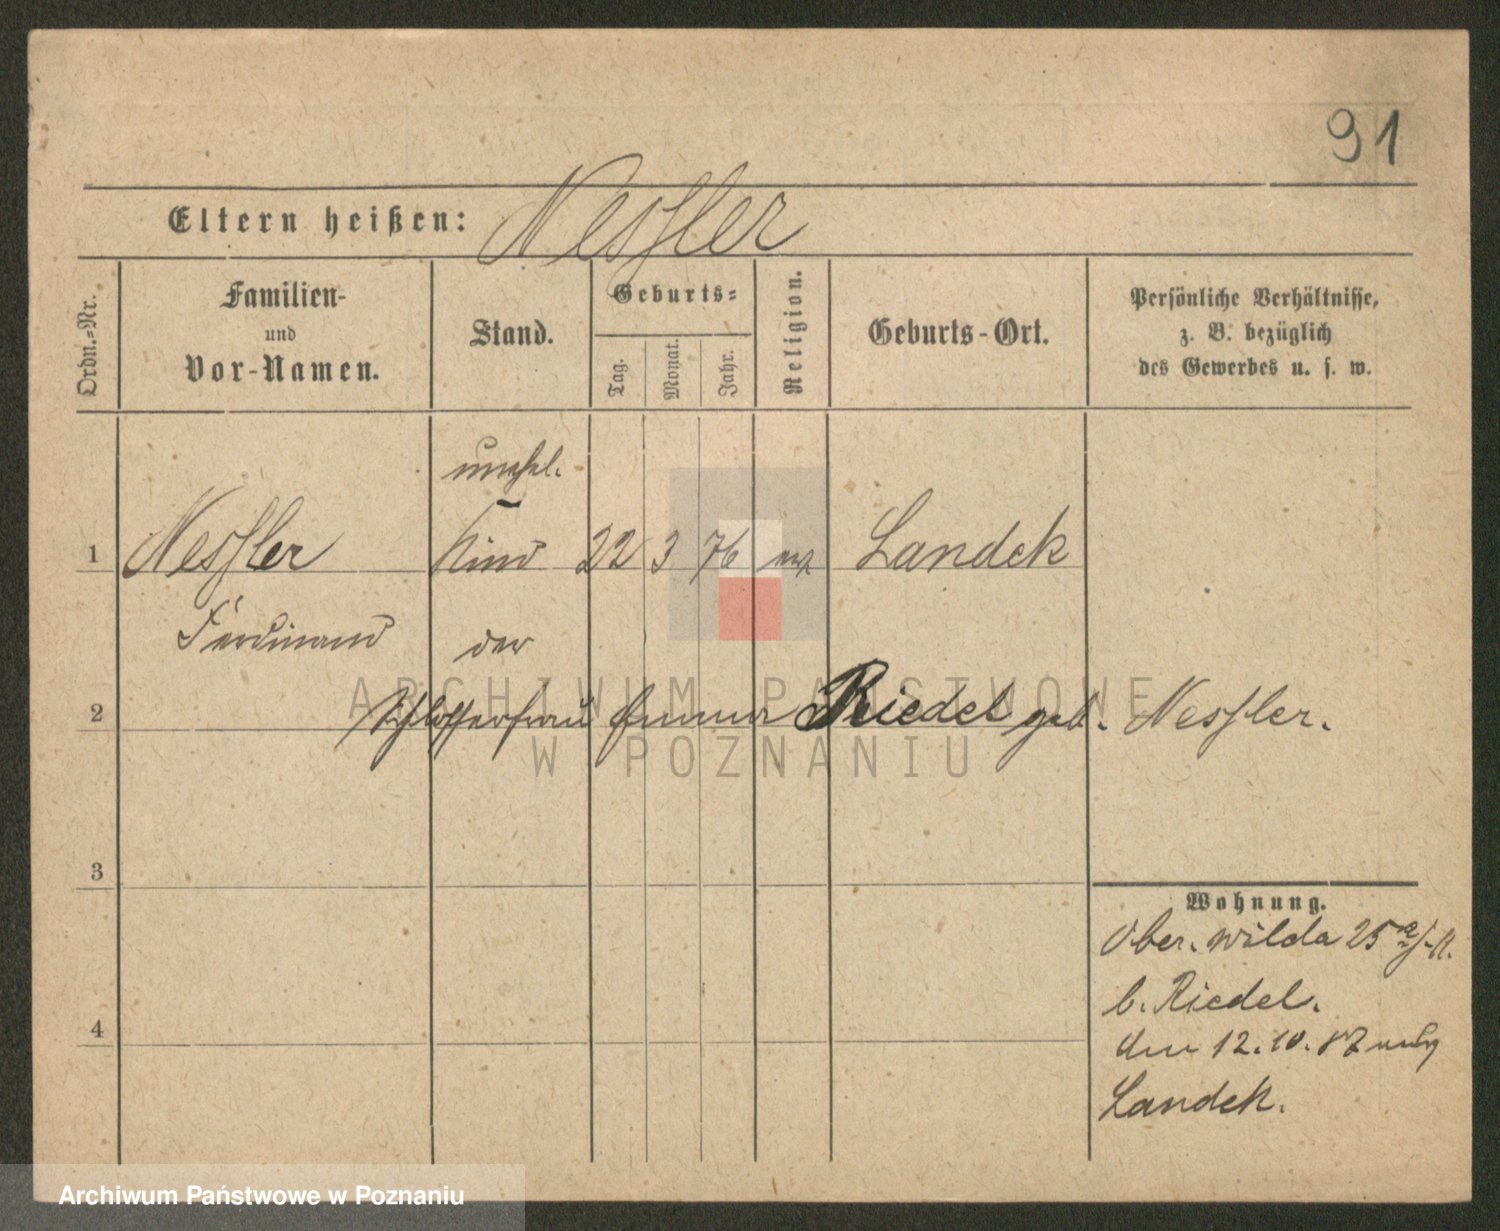 91
Eltern heißen: Nessler
Ordn.-Nr.
Familien-
und
Vor-Namen.
Stand.
Geburts-
Tag.
Monat.
Jahr.
Religion.
Geburts-Ort.
Persönliche Verhältnisse,
z. B. bezüglich
des Gewerbes u. s. w.
unehel.
1 Nessler Kind 22 3 76 Landek
Ferdinand der
2 Schlosserfrau Emma Riedel geb. Nessler.
3
4
Wohnung.
Ober. Wilda 25
b. Riedel.
den 12. 10. 87 nach
Landek.
ARCHIWUM PAŃSTWOWE
W POZNANIU
Archiwum Państwowe w Poznaniu